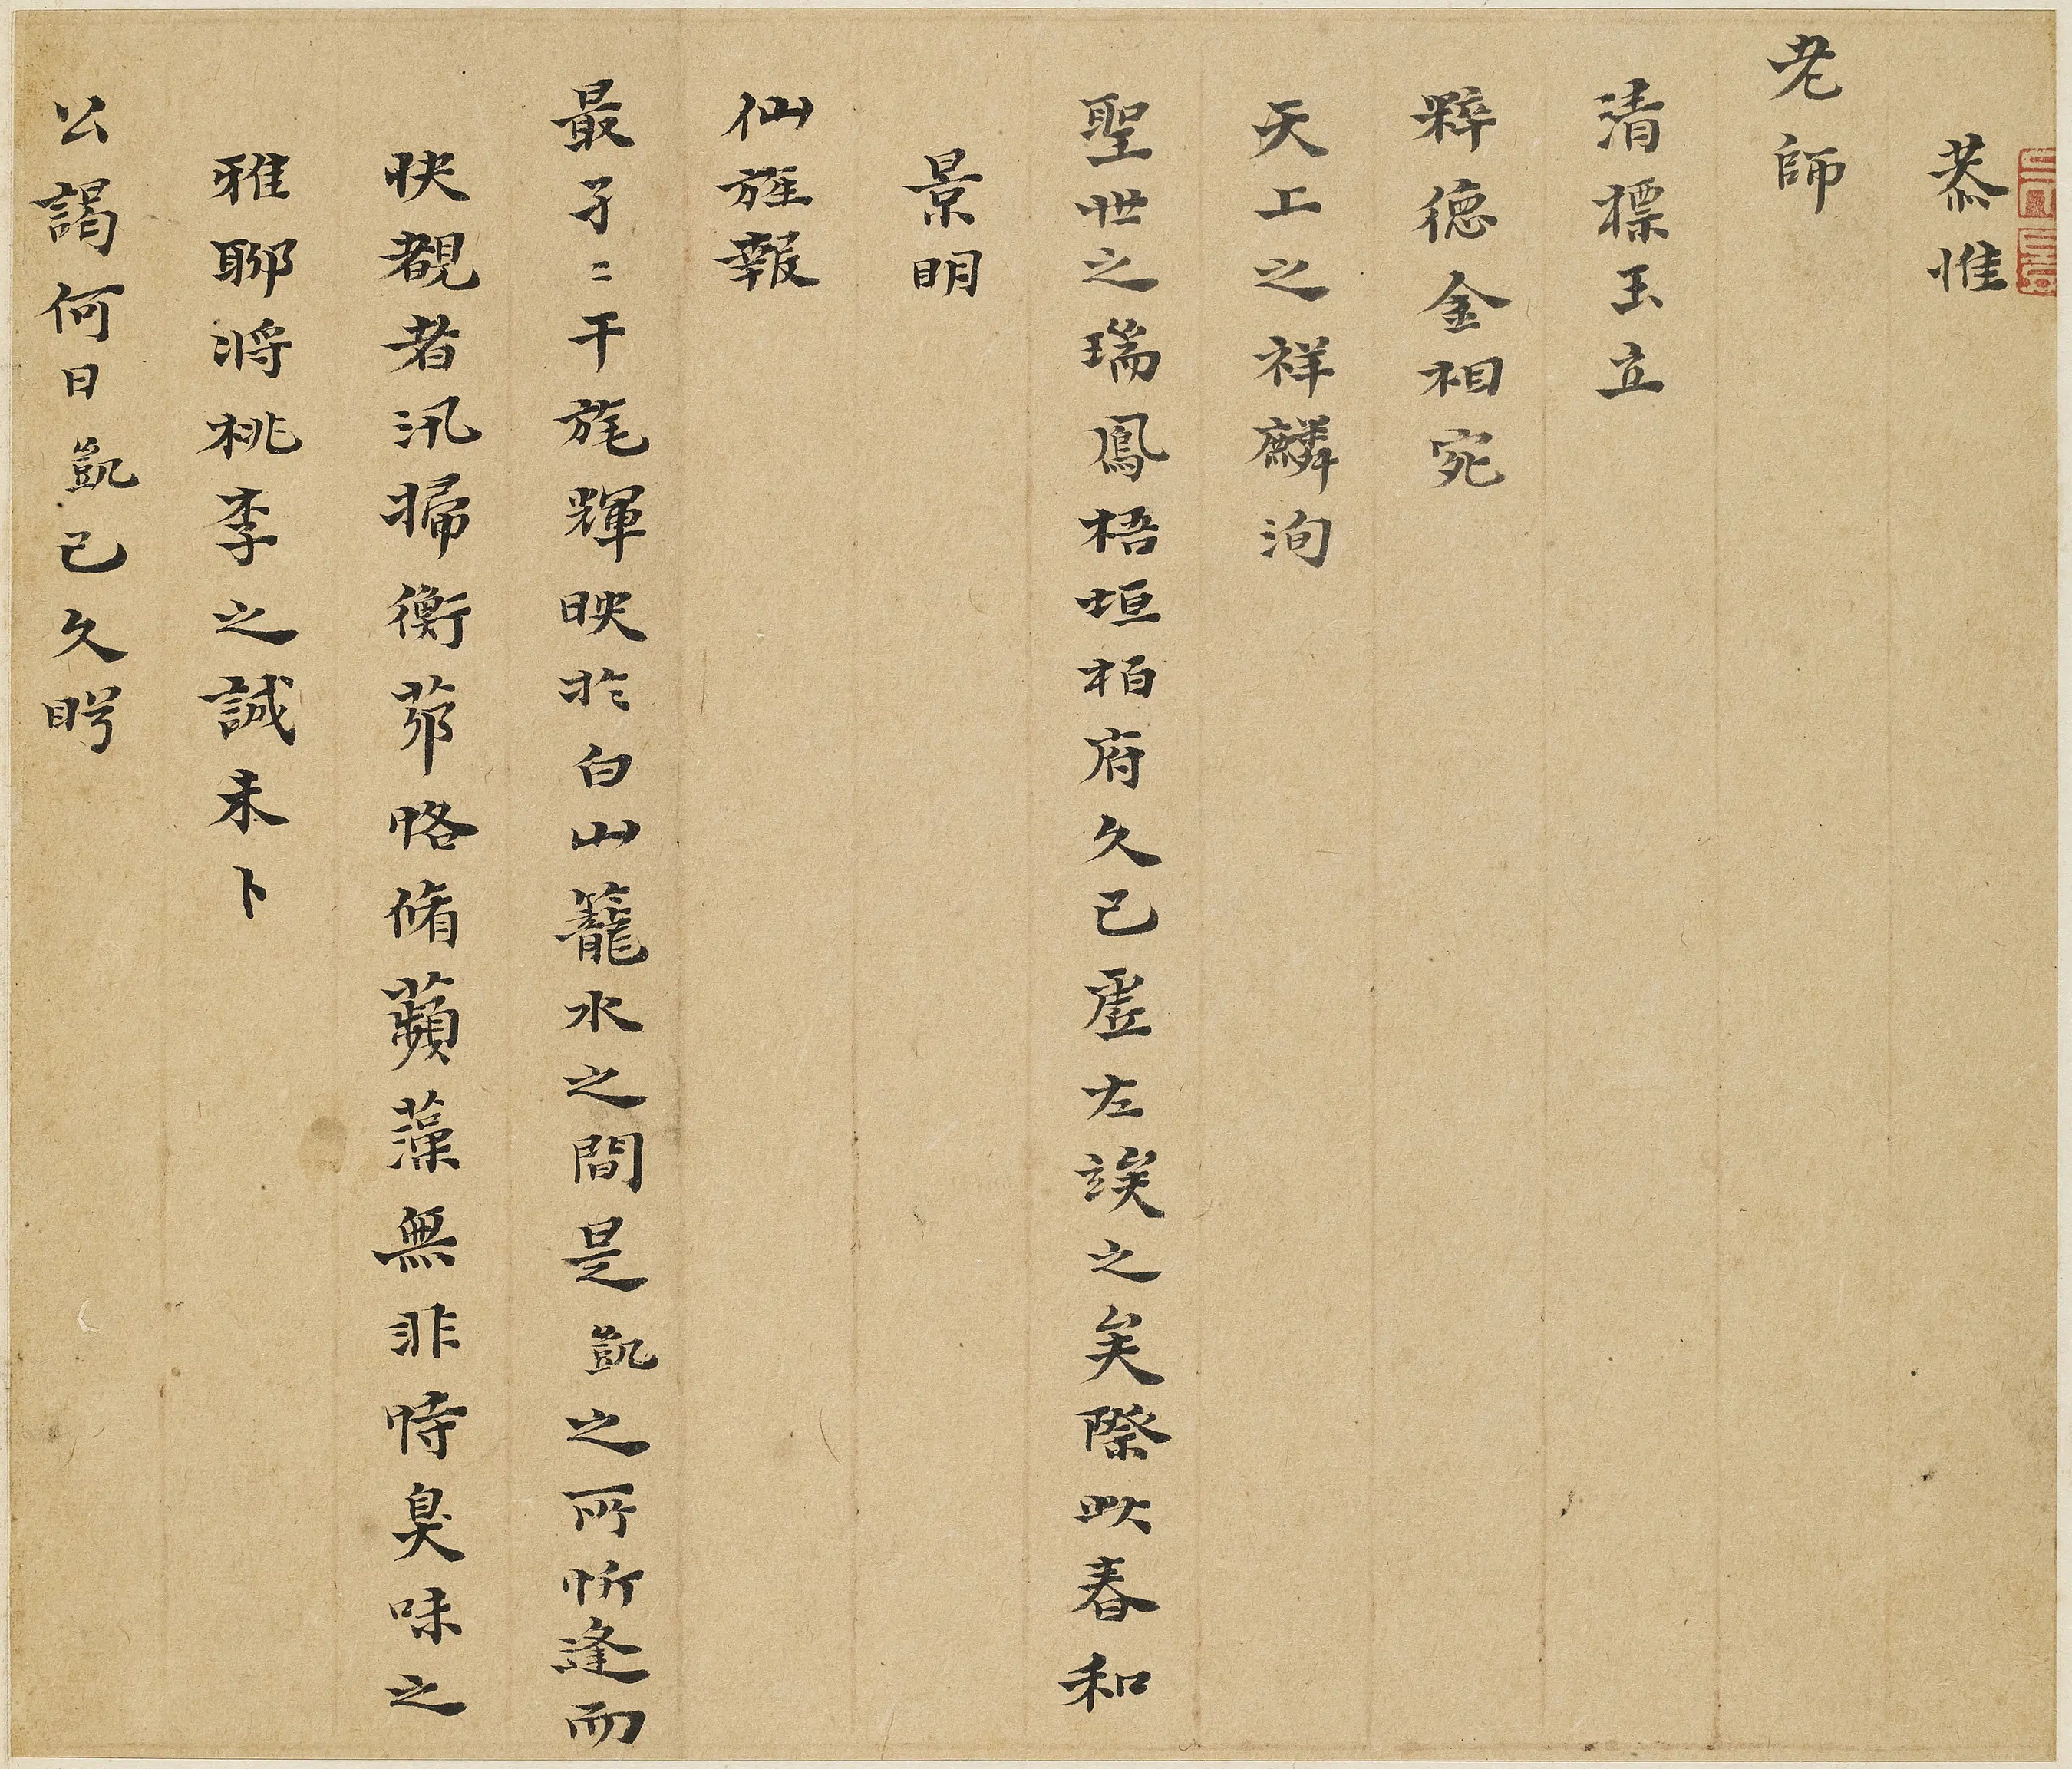 恭惟
老師
清標玉立
粹德金相宛
天上之祥麟洵
聖世之瑞鳳梧垣柏府久已虛左竢之矣際此春和
景明
仙旌報
最孑〻干旄輝映於白山籠水之間是凱之所忻逢而
快覩者汛掃衡茆恪脩蘋藻無非時臭味之
雅聊將桃李之誠未卜
公謁何日凱已久盻